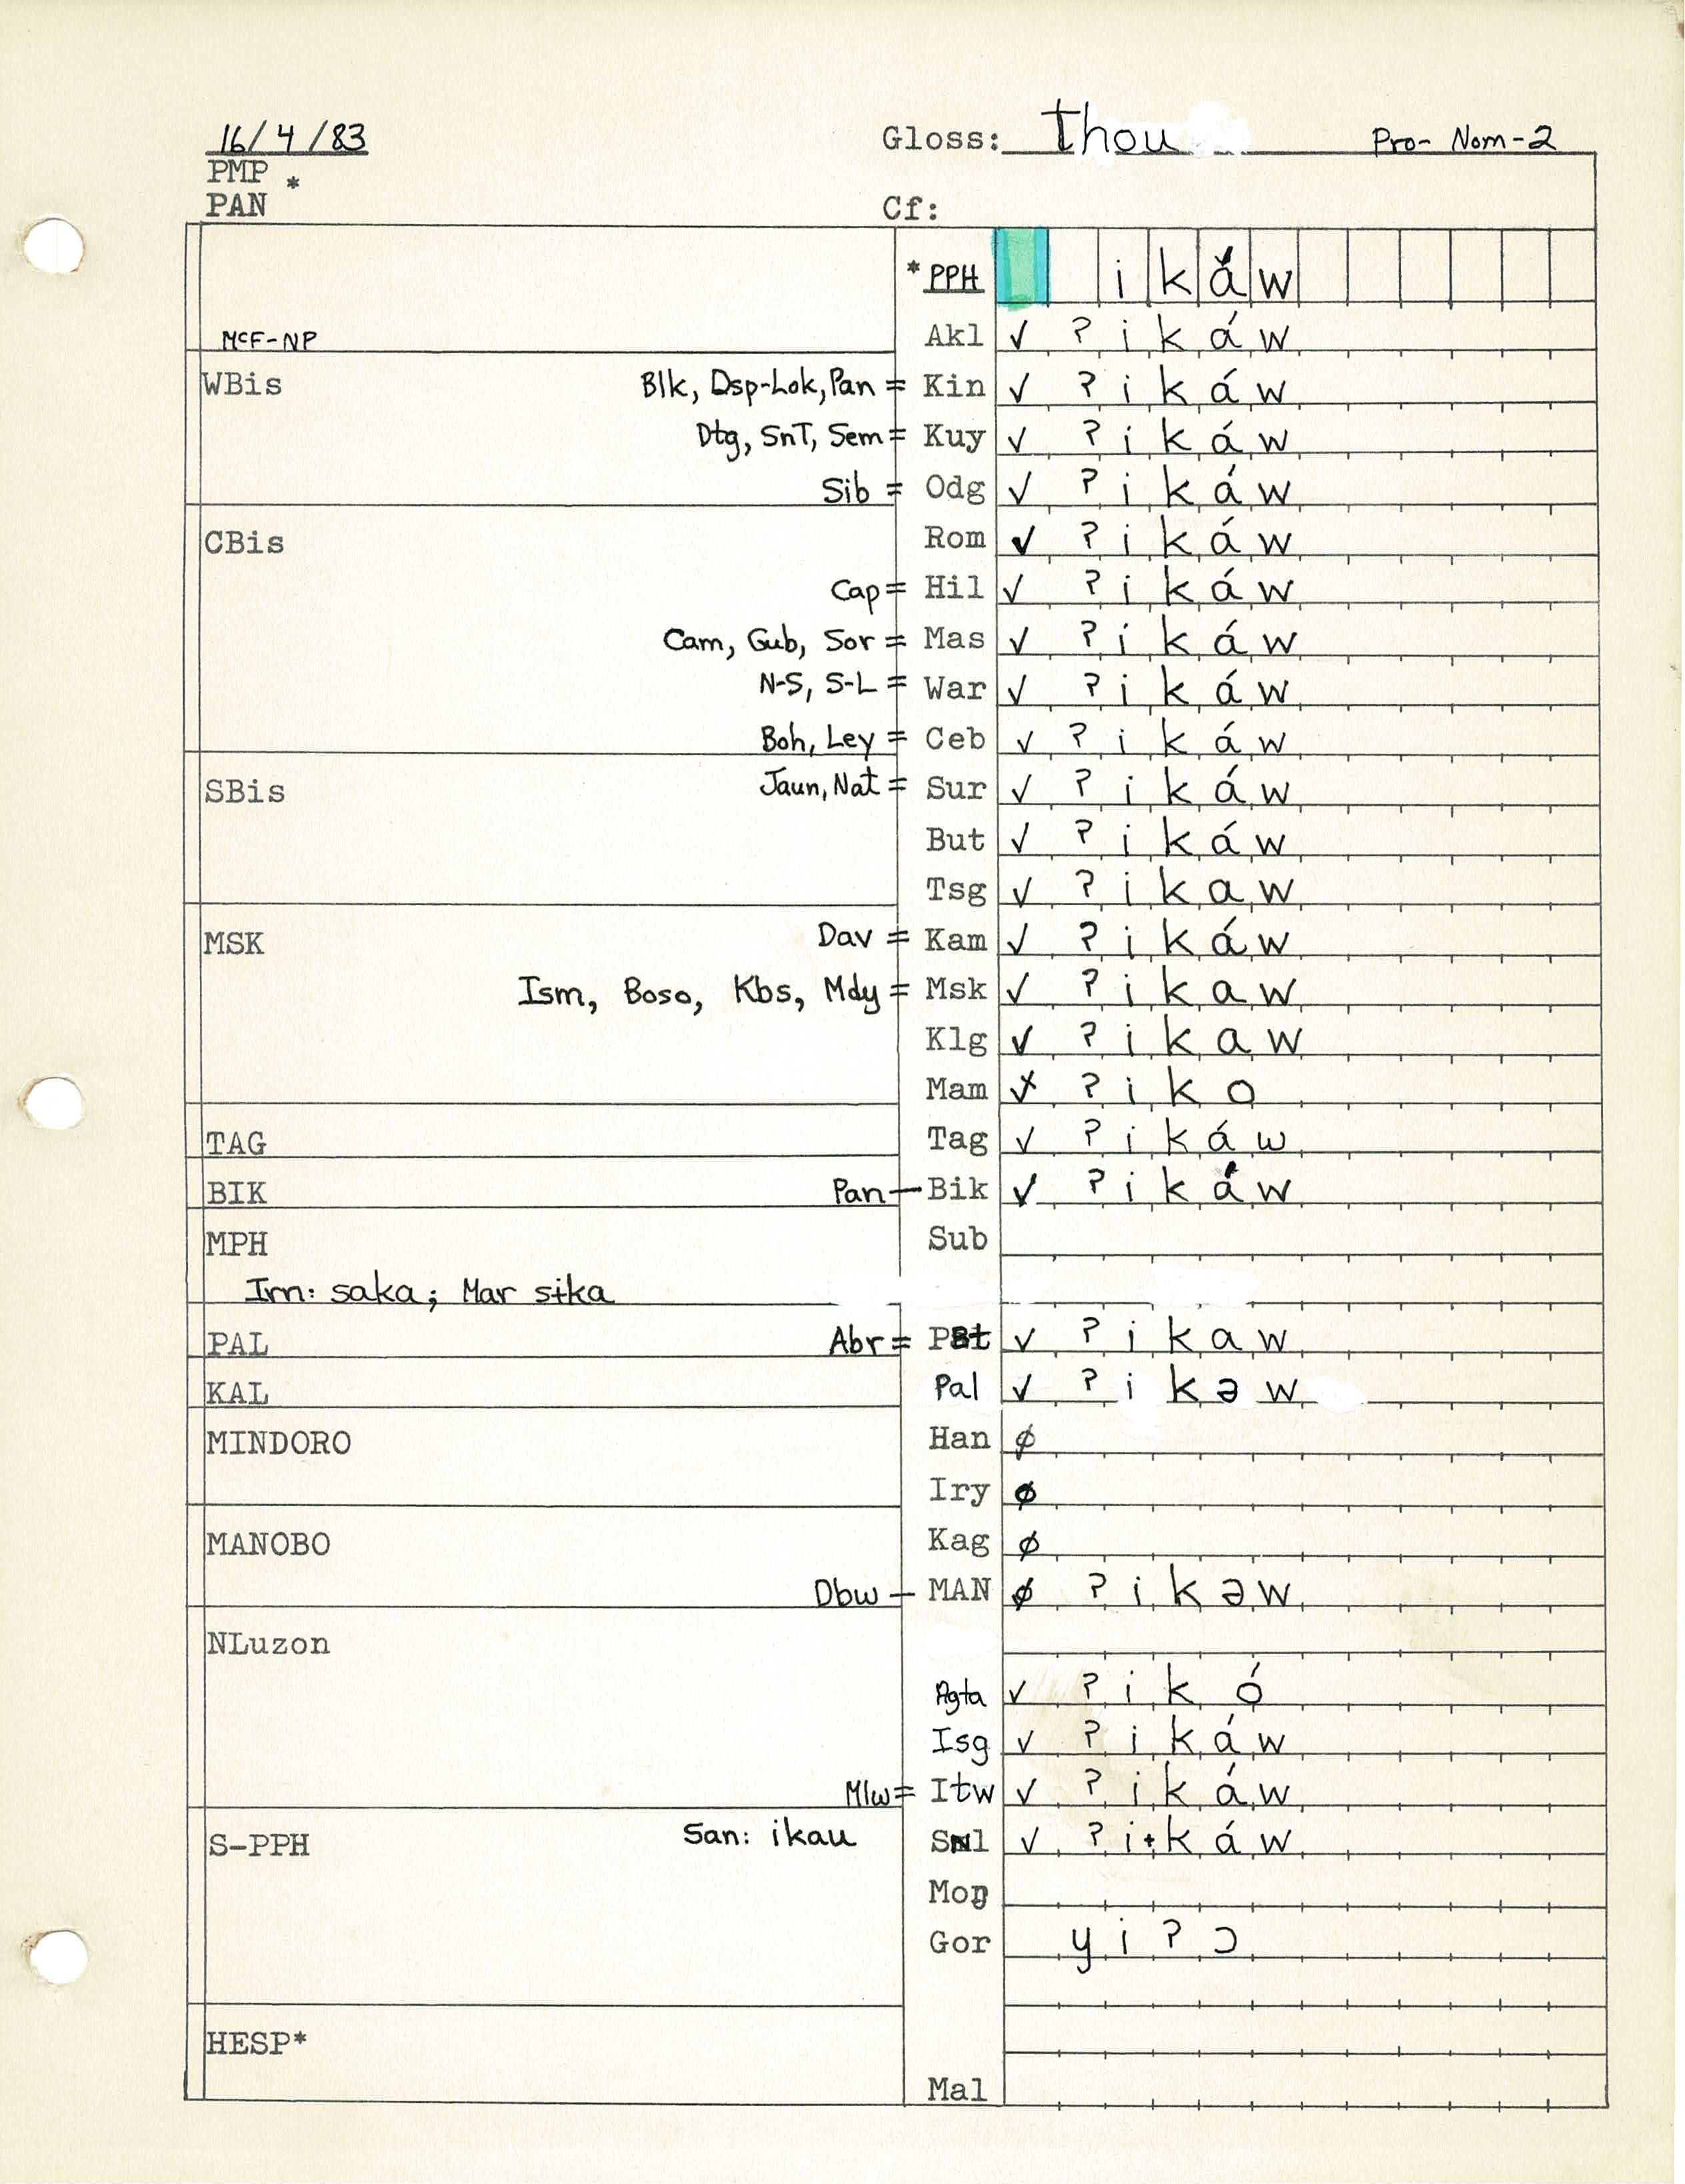 16/4/83 Gloss: thou Pro- Nom-2
PMP *
PAN Cf:
*PPH ikáw
McF-NP Akl ✓ ʔikáw
WBis Blk, Dsp-Lok, Pan = Kin ✓ ʔikáw
Dtg, SnT, Sem = Kuy ✓ ʔikáw
Sib = Odg ✓ ʔikáw
CBis Rom ✓ ʔikáw
Cap = Hil ✓ ʔikáw
Cam, Gub, Sor = Mas ✓ ʔikáw
N-S, S-L = War ✓ ʔikáw
Boh, Ley = Ceb ✓ ʔikáw
SBis Jaun, Nat = Sur ✓ ʔikáw
But ✓ ʔikáw
Tsg ✓ ʔikaw
MSK Dav = Kam ✓ ʔikáw
Ism, Boso, Kbs, Mdy = Msk ✓ ʔikaw
Klg ✓ ʔikaw
Mam ✓ ʔiko
TAG Tag ✓ ʔikáw
BIK Pan — Bik ✓ ʔikáw
MPH Sub
Irn: saka; Mar sɨka
PAL Abr = PBt ✓ ʔikaw
KAL Pal ✓ ʔikəw
MINDORO Han ø
Iry ø
MANOBO Kag ø
Dbw — MAN ø ʔikəw
NLuzon
Agta ✓ ʔikó
Isg ✓ ʔikáw
Mlw = Itw ✓ ʔikáw
S-PPH San: ikau Snl ✓ ʔi+káw
Moŋ
Gor yiʔɔ
HESP*
Mal